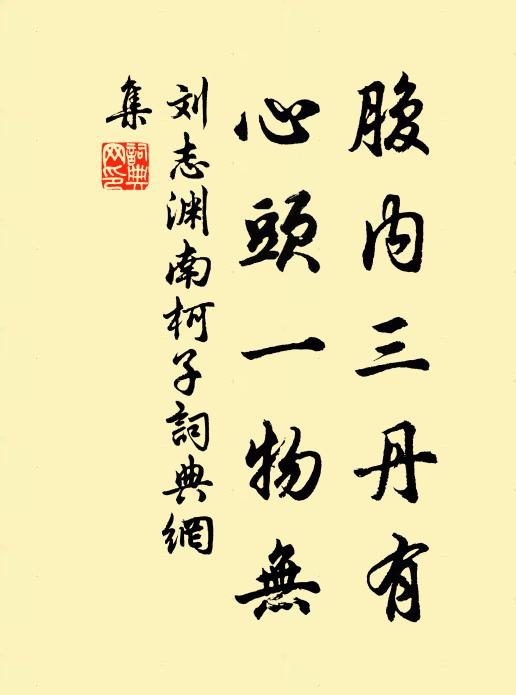 腹内三丹有
心頭一物無
刘志渊南柯子詞典網
集
詞典
网印